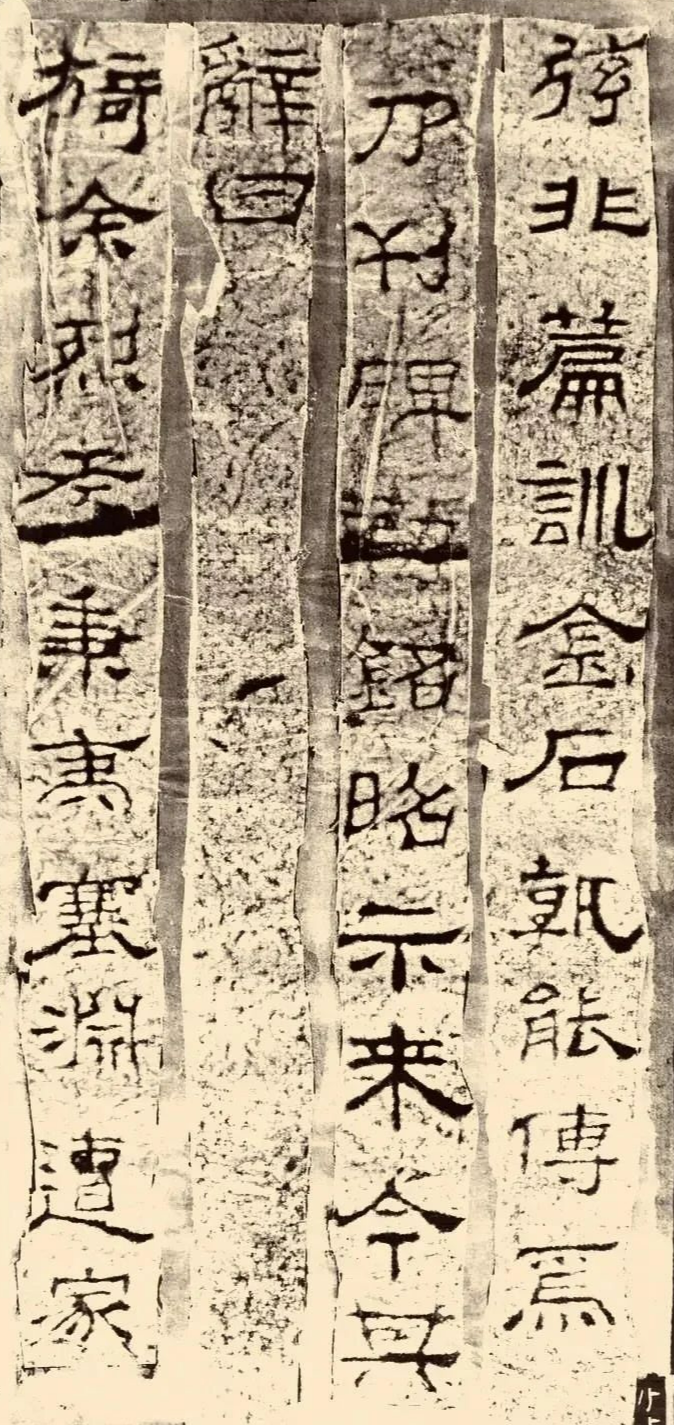 弦非篇訓金石孰能傳焉
乃刊碑勒銘昭示来今其
辭曰
猗余烈考秉夷塞淵遭家